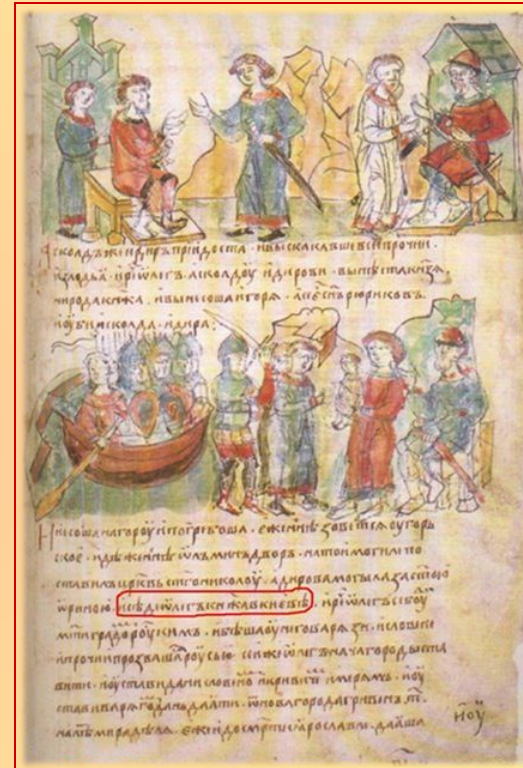 Асколдъ же и диръ придоста . и выскакавше вси прочии .
изъ лодьа . и рѣ ѡлегъ . асколдоу и дирови . вы нѣста кнзѧ .
ни рода кнжа . и вынесоша игорѧ . а се е снъ рюриковъ .
и оуби асколда . и дира :
несоша на гороу и погребоша . еже ннѣ зоветсѧ оугорь
ское . идѣже ннѣ ѡлъминъ дворъ . на тои могилѣ по
ставилъ црквь стго николоу . а дирова могыла за стою
ѡриною . и сѣде ѡлегъ кнѧжа в киевѣ . и рѣ ѡлегъ се боу
мти градо роускимъ . и бѣша оу него варѧзи . и словене
и прочии прозваша роусью . се же ѡлегъ нача городы ста
вити . и оустави дани словено и кривичи и мерѧмъ . и оу
стави варѧго дань даѧти . ѿ новагорода гривенъ т .
на лѣт мира дѣлѧ . еже и до смрти ꙗрославлѧ . даꙗша
иоу